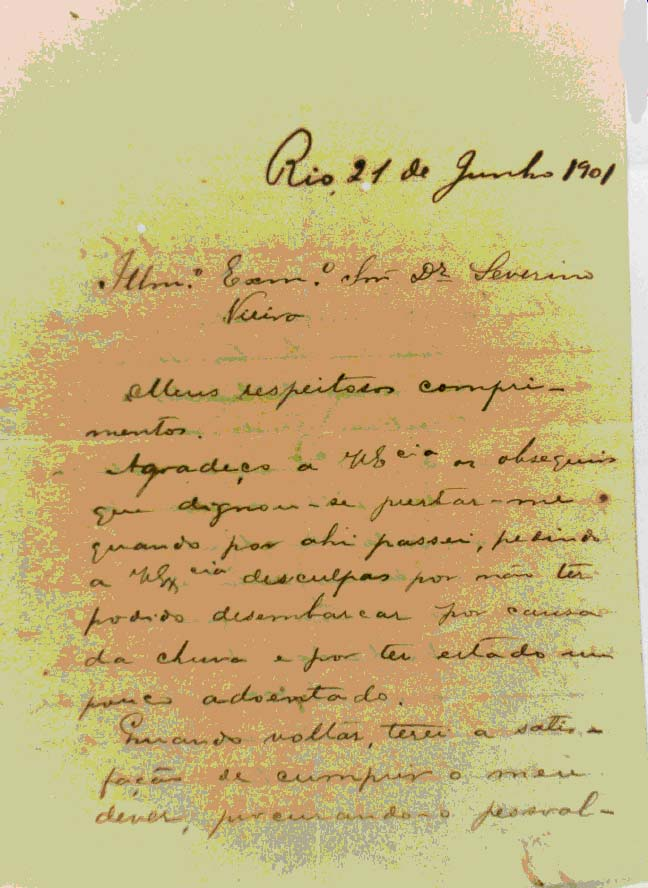 Rio, 21 de Junho 1901
Illm.º Exm.º Snr Dr. Severino
Vieira
Meus respeitosos compri-
mentos.
Agradeço a VEcia os obsequios
que dignou-se prestar-me
quando por ahi passei, pedindo
a VExcia desculpas por não ter
podido desembarcar por causa
da chuva e por ter estado um
pouco adoentado.
Quando voltar, terei a satis-
fação de cumprir o meu
dever, procurando-o pessoal-